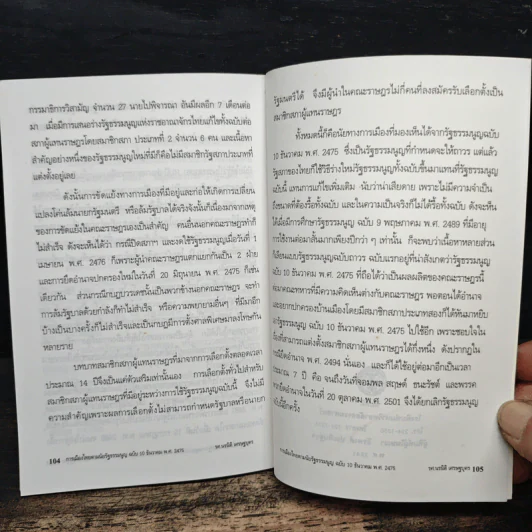 กรรมาธิการวิสามัญ จำนวน 27 นายไปพิจารณา อันมีผลอีก 7 เดือนต่อ
มา เมื่อมีการเสนอร่างรัฐธรรมนูญแห่งราชอาณาจักรไทยแก้ไขทั้งฉบับต่อ
สภาผู้แทนราษฎรโดยสมาชิกสภา ประเภทที่ 2 จำนวน 6 คน และเนื้อหา
สำคัญอย่างหนึ่งของรัฐธรรมนูญใหม่ที่มีก็คือไม่มีสมาชิกรัฐสภาประเภทที่
แต่งตั้งอยู่เลย
ดังนั้นการขัดแย้งทางการเมืองที่มีอยู่และก่อให้เกิดการเปลี่ยน
แปลงโค่นล้มนายกรัฐมนตรี หรือล้มรัฐบาลได้จริงจังนั้นก็เนื่องมาจากเหตุ
ของการขัดแย้งในคณะราษฎรเองเป็นสำคัญ คนอื่นนอกคณะราษฎรทำก็
ไม่สำเร็จ ดังจะเห็นได้ว่า กรณีปิดสภาฯ และงดใช้รัฐธรรมนูญเมื่อวันที่ 1
เมษายน พ.ศ. 2476 ก็เพราะผู้นำคณะราษฎรแตกแยกกันเป็น 2 ฝ่าย
และการยึดอำนาจปกครองใหม่ในวันที่ 20 มิถุนายน พ.ศ. 2476 ก็เช่น
เดียวกัน ส่วนกรณีกบฏบวรเดชนั้นเป็นพวกข้างนอกคณะราษฎร จะทำ
การล้มรัฐบาลด้วยกำลังก็ทำไม่สำเร็จ หรือความพยายามอื่นๆ ที่มีมาอีก
บ้างเป็นบางครั้งก็ไม่สำเร็จและเป็นกบฏมีการตั้งศาลพิเศษมาลงโทษกัน
หลายราย
บทบาทสมาชิกสภาผู้แทนราษฎรที่มาจากการเลือกตั้งตลอดเวลา
ประมาณ 14 ปีจึงเป็นแค่ตัวเสริมเท่านั้นเอง การเลือกตั้งทั่วไปสำหรับ
สมาชิกสภาผู้แทนราษฎรที่มีอยู่ระหว่างการใช้รัฐธรรมนูญฉบับนี้ จึงไม่มี
ความสำคัญเพราะผลการเลือกตั้งไม่สามารถกำหนดรัฐบาลหรือนายก
104 การเมืองไทยตามรัฐธรรมนูญ ฉบับ 10 ธันวาคม พ.ศ. 2475 รศ.นรนิติ เศรษฐบุตร
รัฐมนตรีได้ จึงมีผู้นำในคณะราษฎรไม่กี่คนที่ลงสมัครรับเลือกตั้งเป็น
สมาชิกสภาผู้แทนราษฎร
ทั้งหมดนี้ก็คือนัยทางการเมืองที่มองเห็นได้จากรัฐธรรมนูญฉบับ
10 ธันวาคม พ.ศ. 2475 ซึ่งเป็นรัฐธรรมนูญที่กำหนดจะให้ถาวร แต่แล้ว
รัฐสภาของไทยก็ใช้วิธีร่างใหม่รัฐธรรมนูญทั้งฉบับขึ้นมาแทนที่รัฐธรรมนูญ
ฉบับนี้ แทนการแก้ไขเพิ่มเติม นับว่าน่าเสียดาย เพราะไม่มีความจำเป็น
ถึงขนาดที่ต้องรื้อทั้งฉบับ และในความเป็นจริงก็ไม่ได้รื้อทั้งฉบับ ดังจะเห็น
ได้เมื่อมีการศึกษารัฐธรรมนูญ ฉบับ 9 พฤษภาคม พ.ศ. 2489 ที่มีอายุ
การใช้งานต่อมาสั้นมากเพียงปีกว่า ๆ เท่านั้น ก็จะพบว่าเนื้อหาหลายส่วน
ก็เลียนแบบรัฐธรรมนูญฉบับถาวร ฉบับแรกอยู่ที่น่าสังเกตว่ารัฐธรรมนูญ
ฉบับ 10 ธันวาคม พ.ศ. 2475 ที่ถือได้ว่าเป็นผลผลิตของคณะราษฎรนี้
คณะทหารที่มีความคิดเห็นต่างกับคณะราษฎร พอตอนได้อำนาจ
และอยากปกครองบ้านเมืองโดยมีสมาชิกสภาประเภทสองก็ได้หันมาหยิบ
รัฐธรรมนูญ ฉบับ 10 ธันวาคม พ.ศ. 2475 ไปใช้อีก เพราะชอบใจใน
เรื่องที่สามารถแต่งตั้งสมาชิกสภาผู้แทนราษฎรได้กึ่งหนึ่ง ดังปรากฏใน
กรณียึดอำนาจ พ.ศ. 2494 นั่นเอง และก็ได้ใช้อยู่ต่อมาอีกเป็นเวลา
ประมาณ 7 ปี คือ จนถึงวันที่จอมพล สฤษดิ์ ธนะรัชต์ และพรรค
พวกยึดอำนาจในวันที่ 20 ตุลาคม พ.ศ. 2501 จึงได้ยกเลิกรัฐธรรมนูญ
ฉบับนี้อีกครั้ง
การเมืองไทยตามรัฐธรรมนูญ ฉบับ 10 ธันวาคม พ.ศ. 2475 รศ.นรนิติ เศรษฐบุตร 105